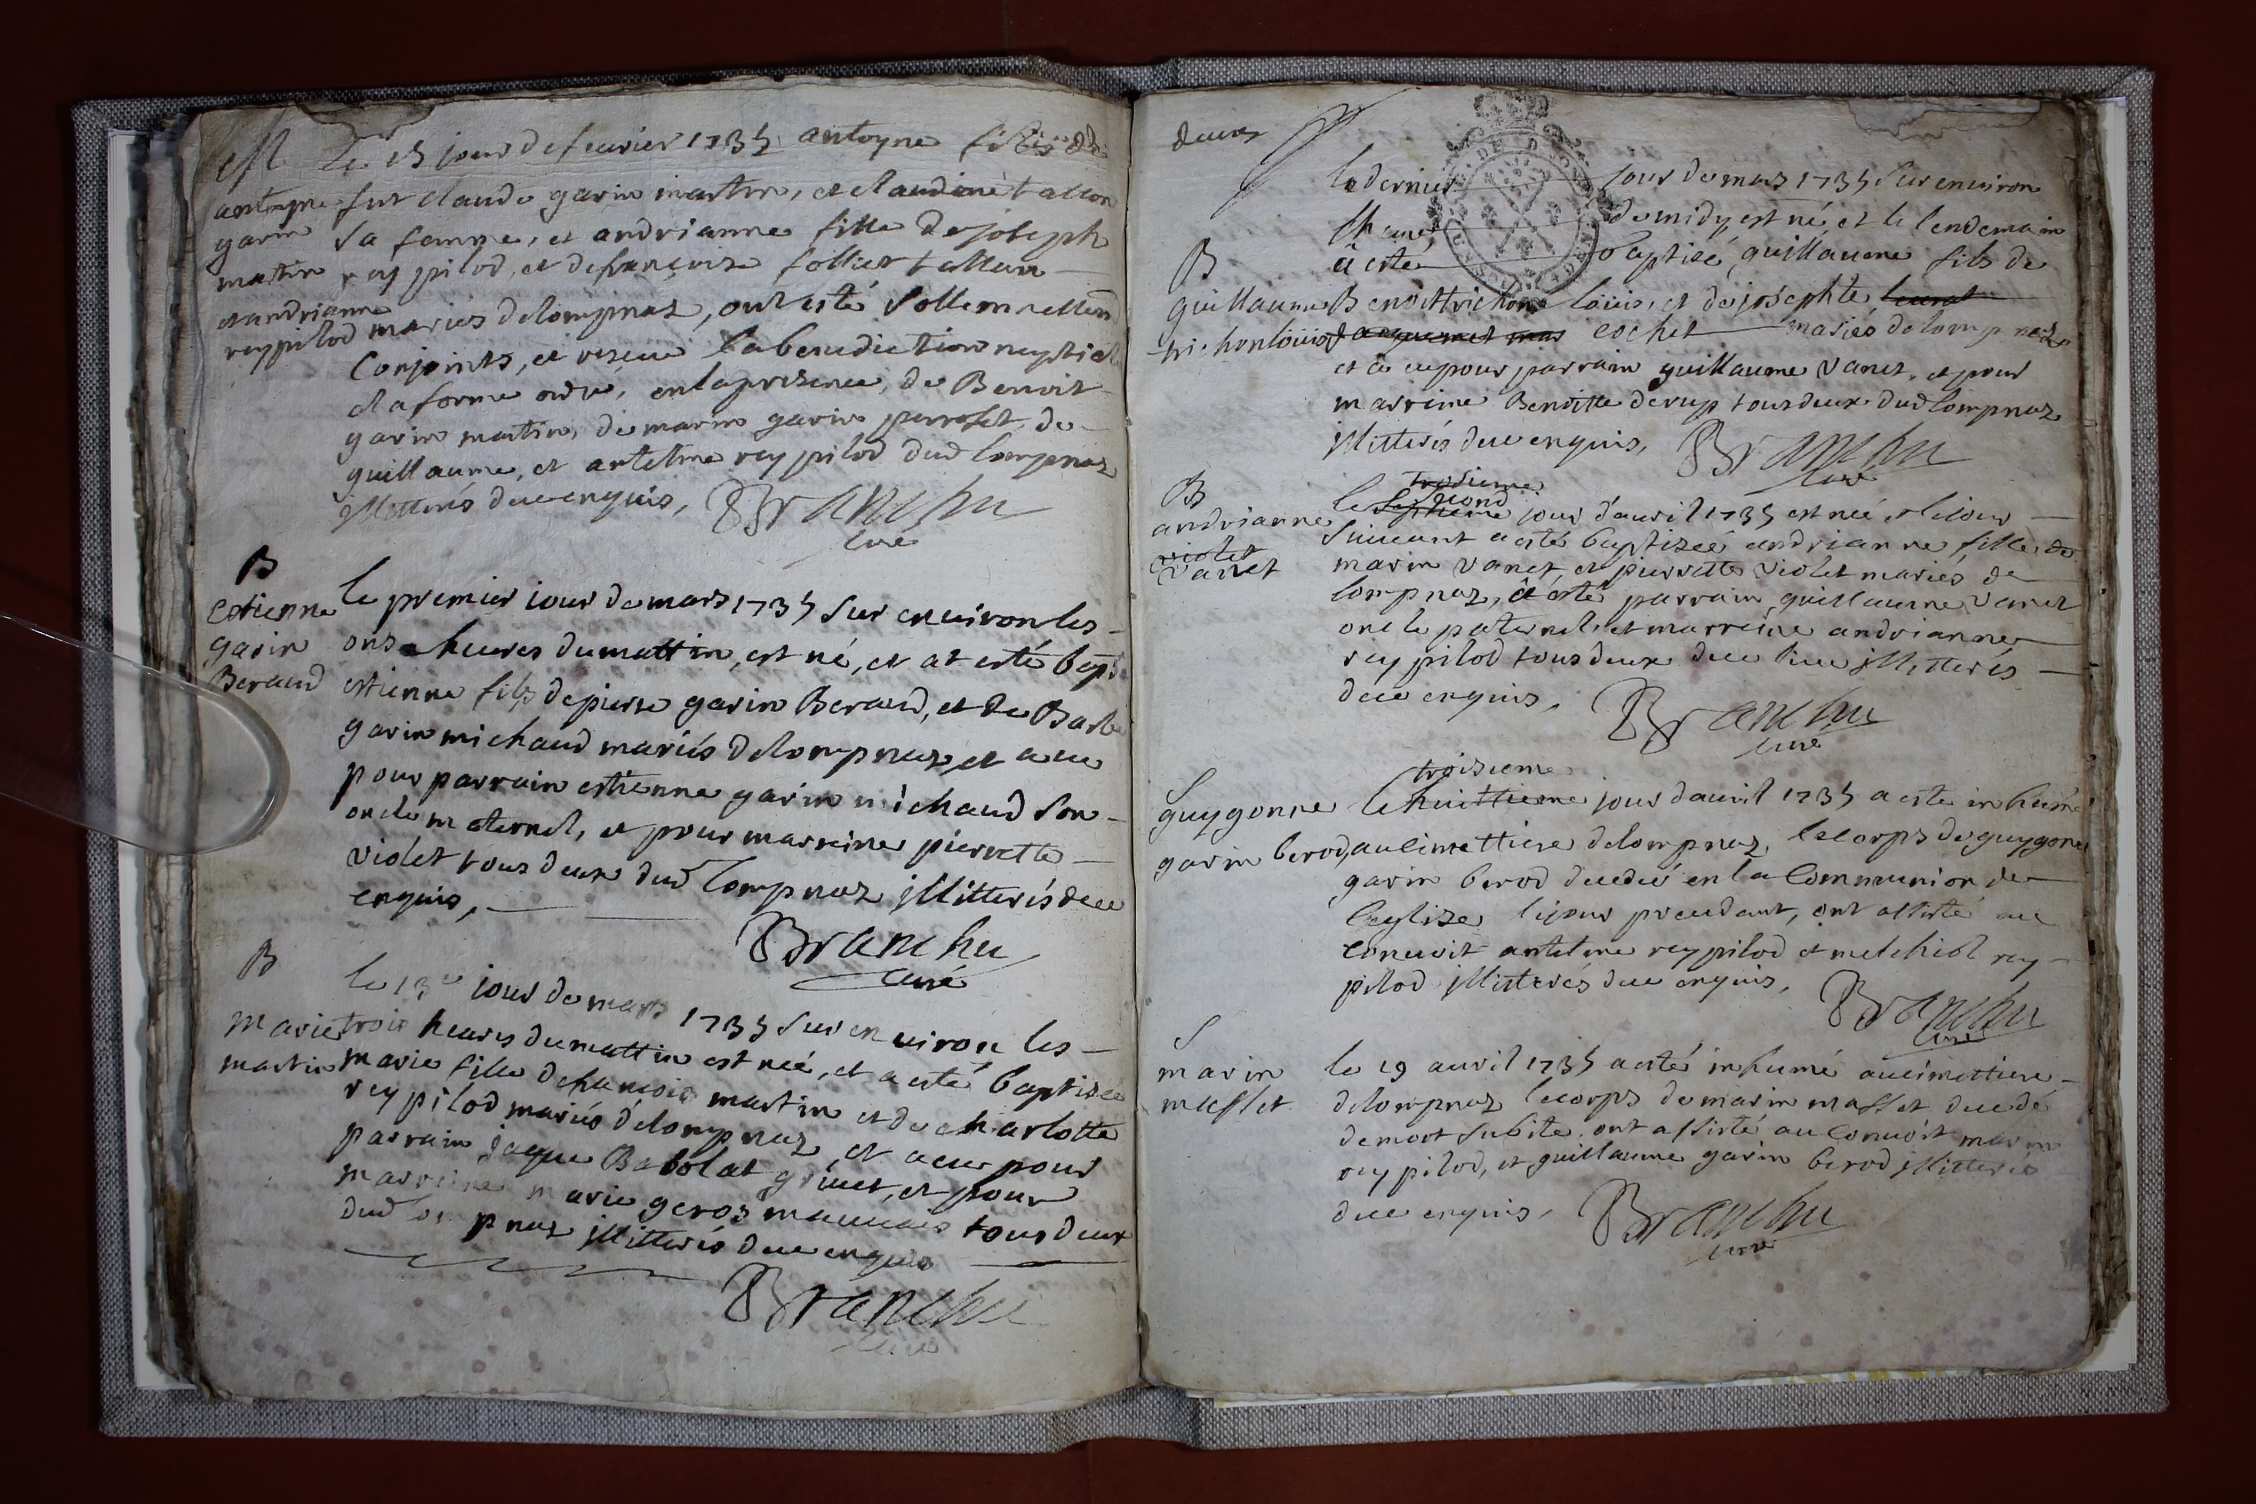 M
antoyne
garin
martin
et andrianne
reypilod
Le 15 jour de feuvrier 1735 antoyne fils de
fut claude garin martin, et claudine tallon
sa femme, et andrianne fille de joseph
rey pilod, et de françoise follier tallon
mariés de lompnaz, ont esté sollemnellem
conjoints, et reseu la benediction nuptialle
a la forme ordre, en la presence, de Benoit
garin martin, de marin garin perrolet, de
guillaume, et antelme rey pilod dud lompnaz
illitterés deue enquis, Branchu
curé
B
estienne
garin
Beraud
le premier iour de mars 1735 sur enuiron les
onse heures du mattin, est né, et at esté bapsé
estienne fils de pierre garin Beraud, et de Barbe
garin michaud mariés de lompnaz et a eu
pour parrain estienne garin michaud son
oncle maternel, et pour marreine pierrette
violet tous deux dud lompnaz illitterés deue
enquis,
Branchu
curé
B
Marie
martin
le 13e iour de mars 1735 sur enuiron les
trois heures du mattin est née, et a esté baptisée
marie fille de françois martin et de charlotte
rey pilod mariés de lompnaz, et a eu pour
parrain jaque Babolat grinet, et pour
marreine marie geros mauuais tous deux
dud lompnaz illitterés deue enquis
Branchu
curé
deux
B
guillaume
trichon loüis
le dernier jour de mars 1735 sur enuiron
heures de midy, est né, et le lendemain
â esté baptisé, guillaume fils de
Benoit trichon loüis, et de josephte
cochet mariés de lompnaz
et â eu pour parrain guillaume Vanet, et pour
marreine Benoitte derup tous deux dud lompnaz
illitterés deue enquis, Branchu
curé
B
andrianne
violet
Vanet
troisieme
second
le septieme jour d'auril 1735 est née, et le iour
suiuant a esté baptisée andrianne fille de
marin Vanet et pierrette Violet mariés de
lompnaz, â esté parrain guillaume Vanet
oncle paternel, et marreine andrianne
rey pilod tous deux due lieu illitterés
deue enquis, Branchu
curé
S
guygonne
garin berod,
troisieme
le huittieme jour dauril 1735 a esté inhumé
au cimettiere de lompnaz, le corps de guygone
garin berod decedé en la Communion de
l'eglize le jour precedant, ont assisté au
conuoit antelme rey pilod et melchiol rey
pilod illitterés deue enquis, Branchu
curé
S
marin
masset
le 19 auril 1735 a esté inhumé au cimettiere
de lompnaz le corps de marin masset decedé
de mort subite, ont assisté au conuoit marin
rey pilod, et guillaume garin berod illitterés
deue enquis, Branchu
curé